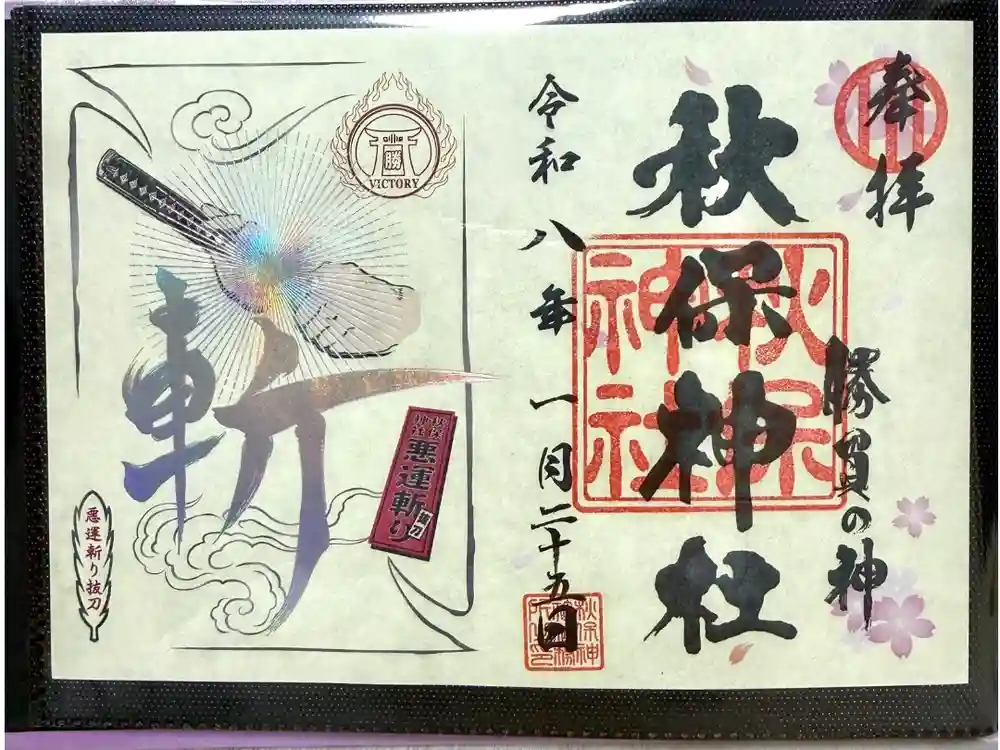 奉拝
勝負の神
秋保神社
秋保
神社
令和八年一月二十五日
勝
VICTORY
斬
秋保
神社
悪運斬り
抜刀
悪運斬り抜刀